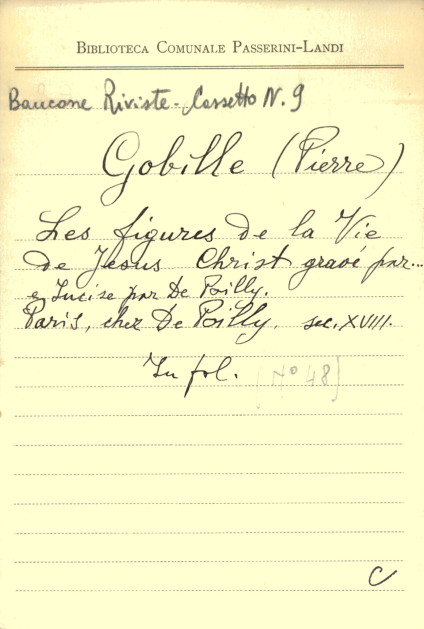 BIBLIOTECA COMUNALE PASSERINI-LANDI
Bancone Riviste - Cassetto N. 9
Gobille (Pierre)
Les figures de la Vie
de Jesus Christ gravé par...
e Incise par De Poilly.
Paris, chez De Poilly, sec. XVIII.
In fol. [N° 48]
C